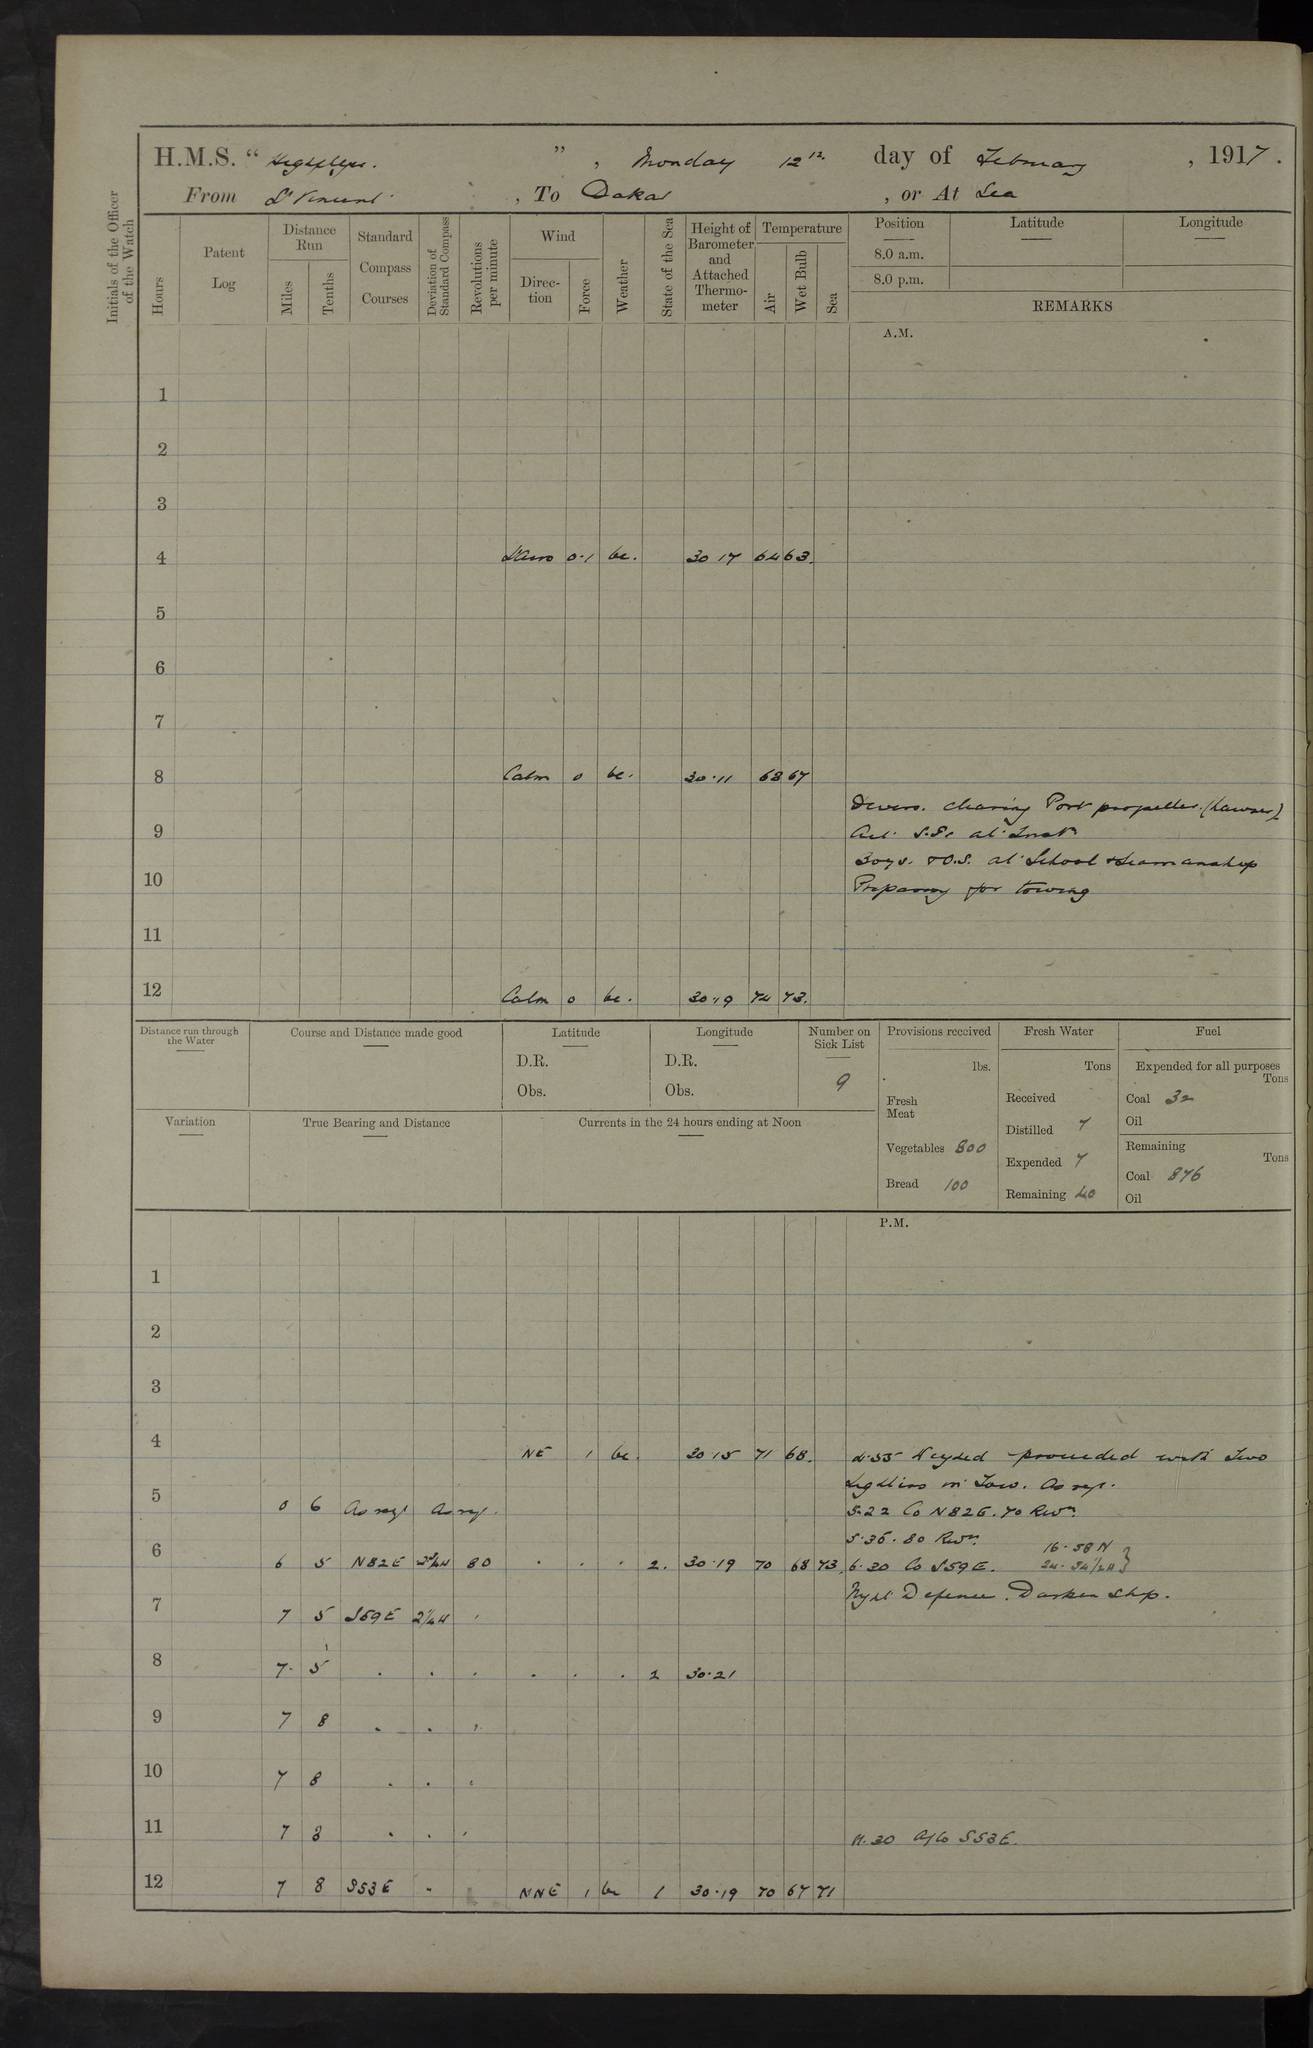 H.M.S. "Highflyer." , Monday 12th day of February , 1917.
From St Vincent , To Dakar , or At Sea
Initials of the Officer of the Watch
Hours
Patent Log
Distance Run
Miles
Tenths
Standard Compass Courses
Deviation of Standard Compass
Revolutions per minute
Wind
Direction
Force
Weather
State of the Sea
Height of Barometer and Attached Thermometer
Temperature
Air
Wet Bulb
Sea
Position Latitude Longitude
8.0 a.m.
8.0 p.m.
REMARKS
A.M.
1
2
3
4 0-1 bc. 30.17 64 63.
5
6
7
8 Calm 0 bc. 30.11 68 67
Divers. clearing Port propeller. (hawser)
9
at Instn
Boys. & O.S. at School & Seamanship
10
Preparing for towing
11
12 Calm 0 bc. 30.19 74 73.
Distance run through the Water
Course and Distance made good
Latitude
D.R.
Obs.
Longitude
D.R.
Obs.
Number on Sick List
9
Provisions received
lbs.
Fresh Meat
Vegetables 800
Bread 100
Fresh Water
Tons
Received
Distilled 7
Expended 7
Remaining 40
Fuel
Expended for all purposes
Tons
Coal 32
Oil
Remaining
Tons
Coal 876
Oil
Variation
True Bearing and Distance
Currents in the 24 hours ending at Noon
P.M.
1
2
3
4 NE 1 bc. 30.15 71 68. 4.55 Weighed & proceeded with Two
Lighters in Tow. As req.
5 0 6 As req. As req. 5.22 Co N82E. 70 Revn.
5.36. 80 Revn.
6 6 5 N82E 80 . . . 2. 30.19 70 68 73. 6.30 Co S59E. 16.58 N 24.54 1/2 W }
Night Defence. Darken ship.
7 7 5 S59E 2 1/4 W "
8 7. 5 . . . . . . 2 30.21
9 7 8 . . "
10 7 8 . . "
11 7 8 . . " 11.30 A/Co S53E.
12 7 8 S53E . NNE 1 bc 1 30.19 70 67 71